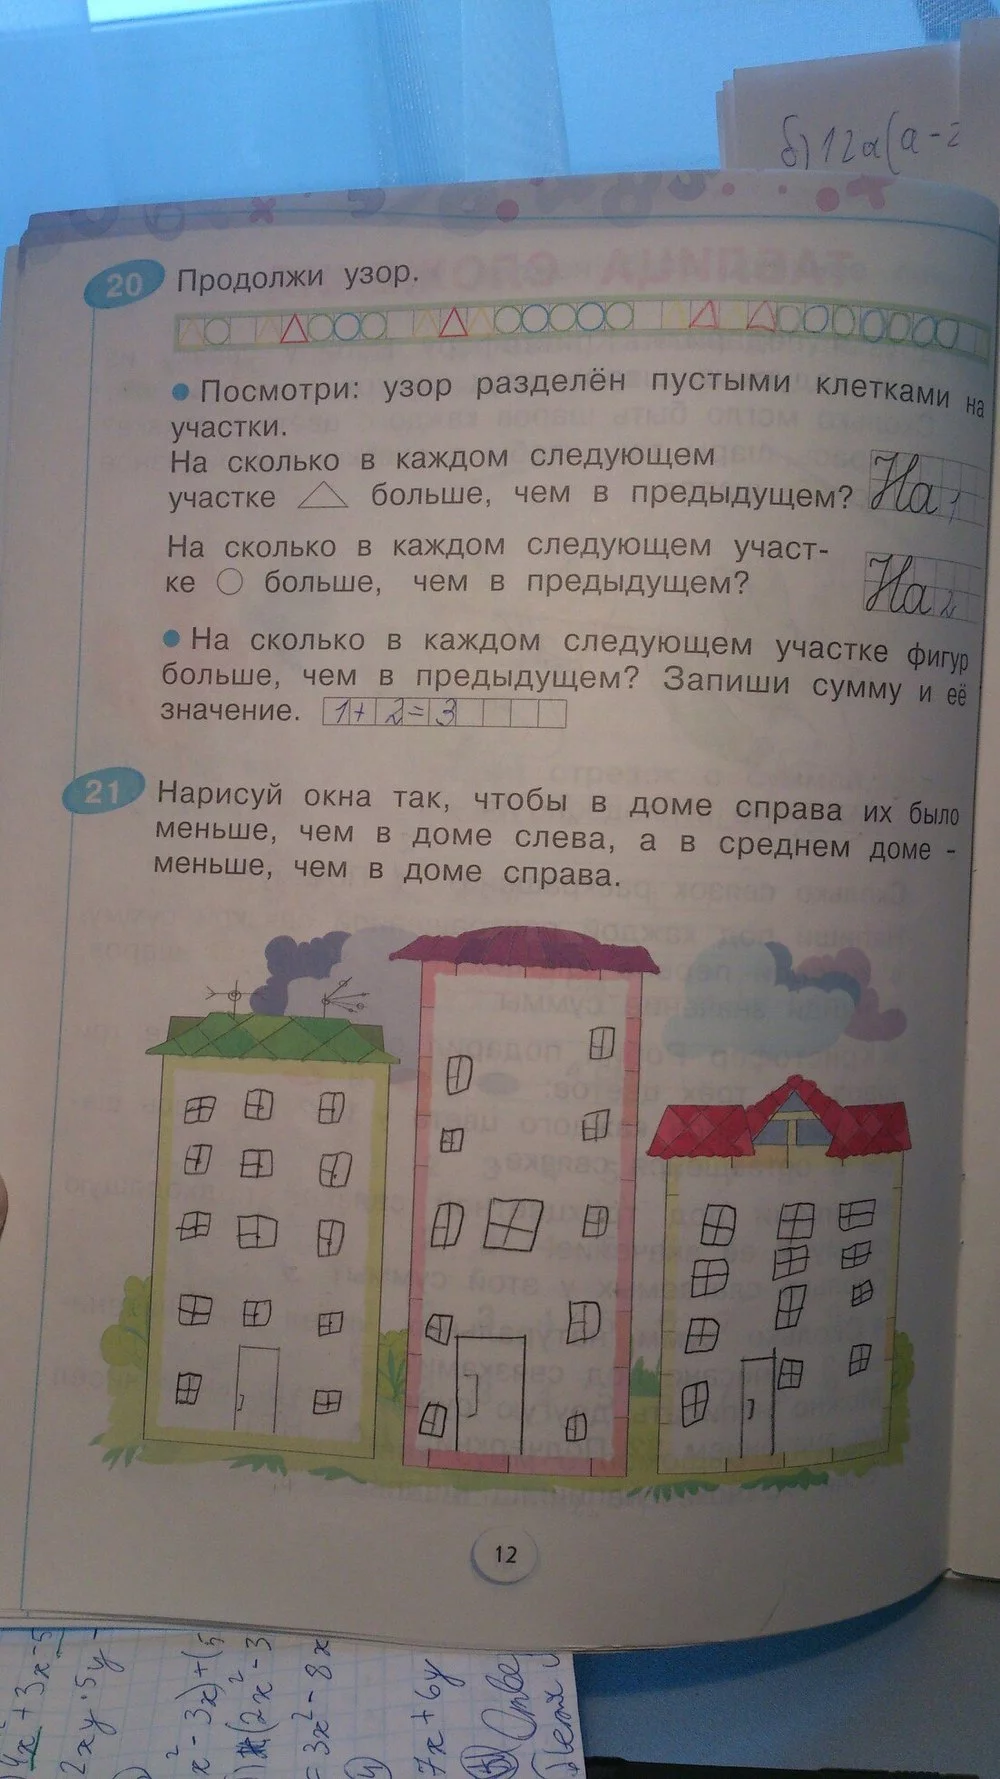 б) 12а(а-2
20 Продолжи узор.
• Посмотри: узор разделён пустыми клетками на
участки.
На сколько в каждом следующем
участке △ больше, чем в предыдущем? На 1
На сколько в каждом следующем участ-
ке ○ больше, чем в предыдущем? На 2
• На сколько в каждом следующем участке фигур
больше, чем в предыдущем? Запиши сумму и её
значение. 1+2=3
21 Нарисуй окна так, чтобы в доме справа их было
меньше, чем в доме слева, а в среднем доме -
меньше, чем в доме справа.
12